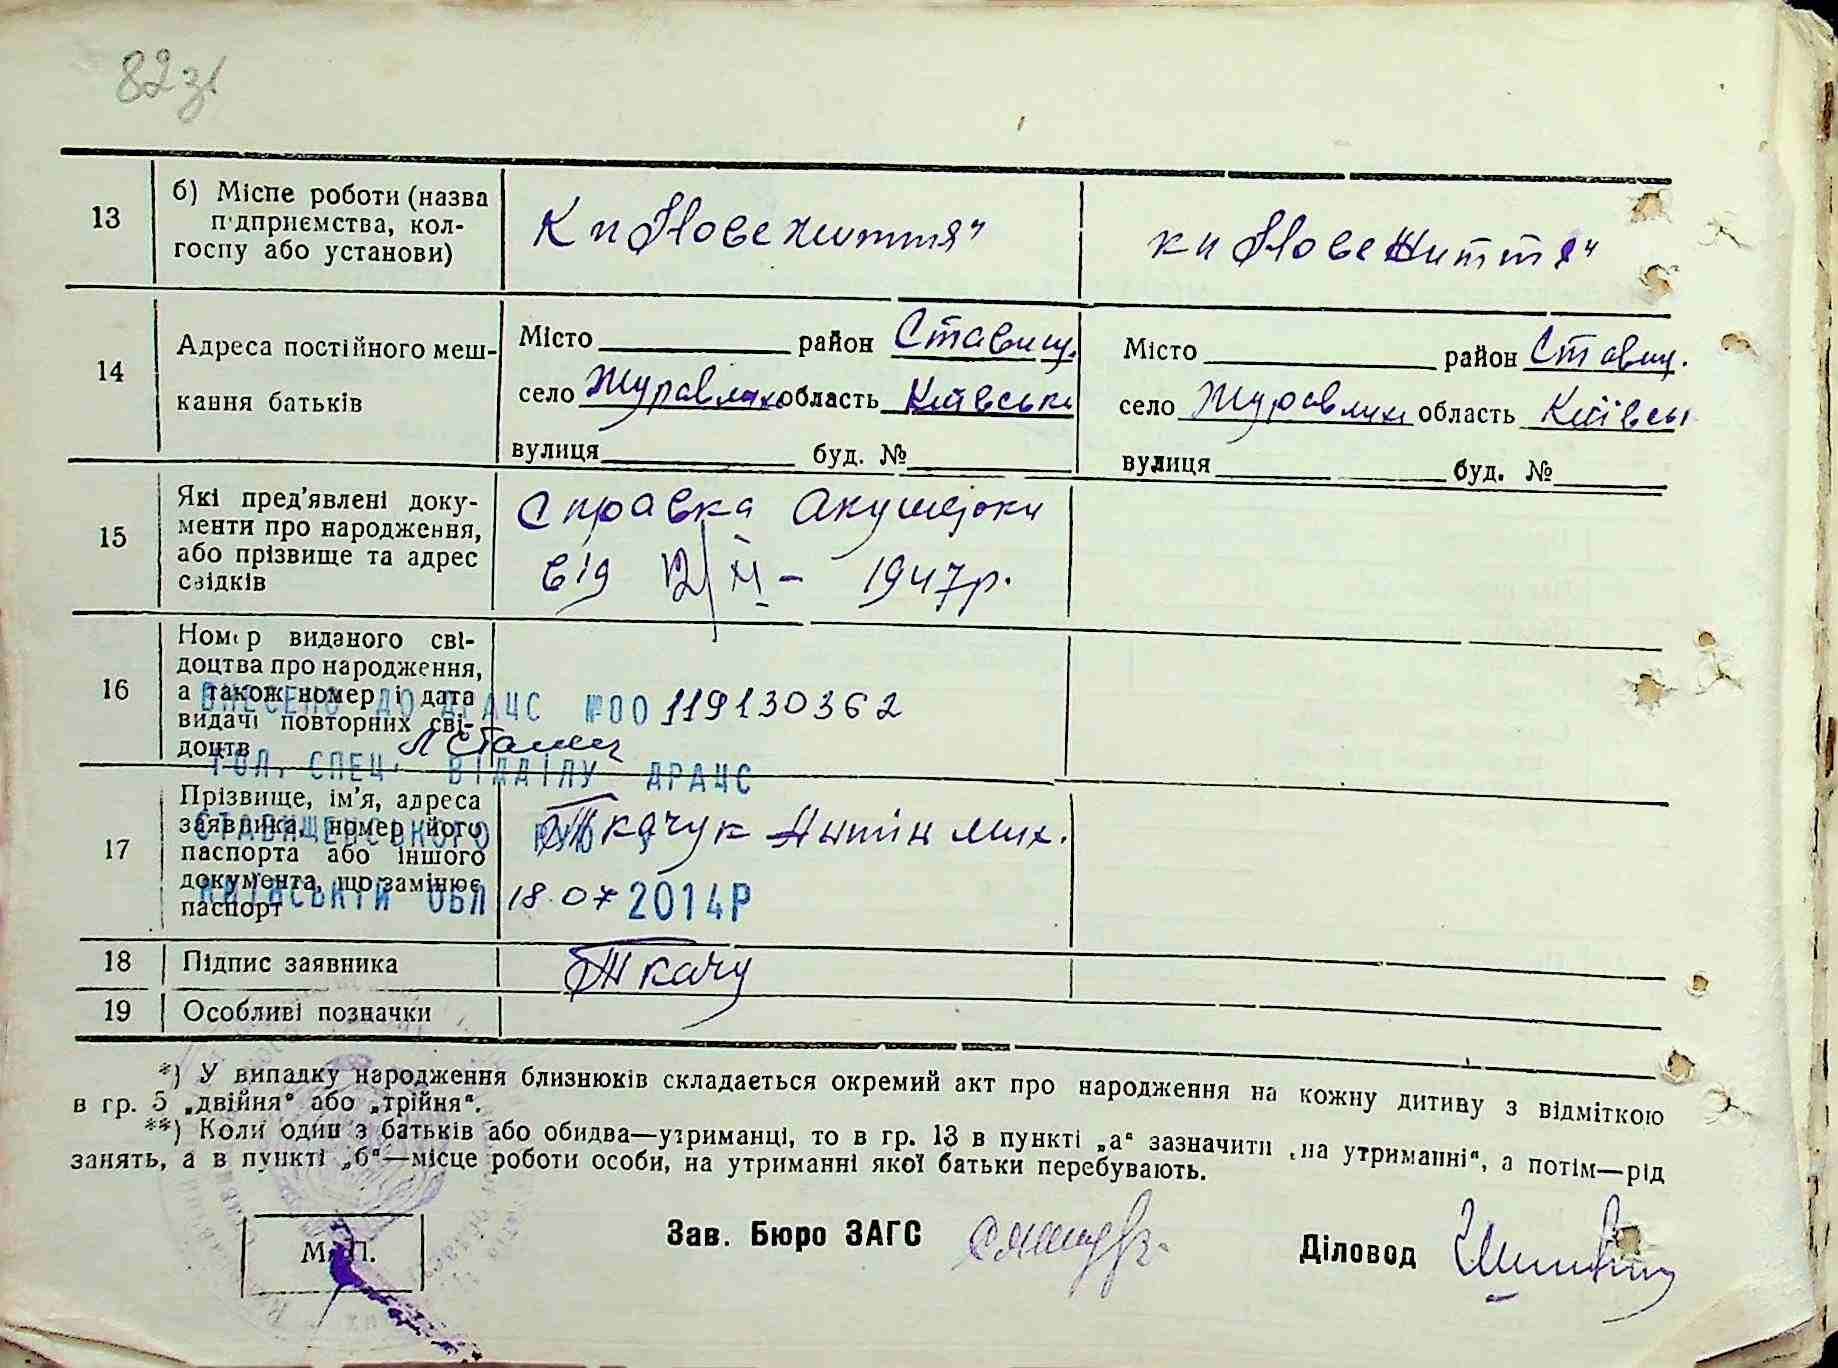 82 зв
13
б) Місце роботи (назва
підприємства, кол-
госпу або установи)
К п „Нове життя"
кп „Нове Життя"
14
Адреса постійного меш-
кання батьків
Місто район Ставищ.
село Журавлиха область Київськ
вулиця буд. №
Місто район Ставищ.
село Журавлиха область Київсь
вулиця буд. №
15
Які пред'явлені доку-
менти про народження,
або прізвище та адрес
свідків
Справка акушерки
від 12/XI - 1947р.
16
Номер виданого сві-
доцтва про народження,
а також номер і дата
видачі повторних сві-
доцтв
ВНЕСЕНО ДО ДРАЦС №00119130362
ГОЛ. СПЕЦ. ВІДДІЛУ ДРАЦС
СТАВИЩЕНСЬКОГО
КИЇВСЬКІЙ ОБЛ 18.07 2014Р
17
Прізвище, ім'я, адреса
заявника, номер його
паспорта або іншого
документа, що замінює
паспорт
Ткачук Антін Мих.
18
Підпис заявника
Ткачу
19
Особливі позначки
*) У випадку народження близнюків складається окремий акт про народження на кожну дитину з відміткою
в гр. 5 „двійня" або „трійня".
**) Коли один з батьків або обидва—утриманці, то в гр. 13 в пункті „а" зазначити „на утриманні", а потім—рід
занять, а в пункті „б"—місце роботи особи, на утриманні якої батьки перебувають.
М. П.
Зав. Бюро ЗАГС
Діловод